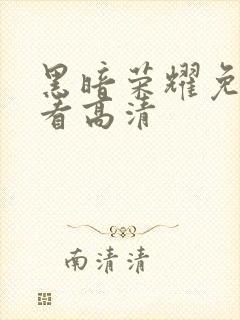 黑暗荣耀免
看高清
南清清